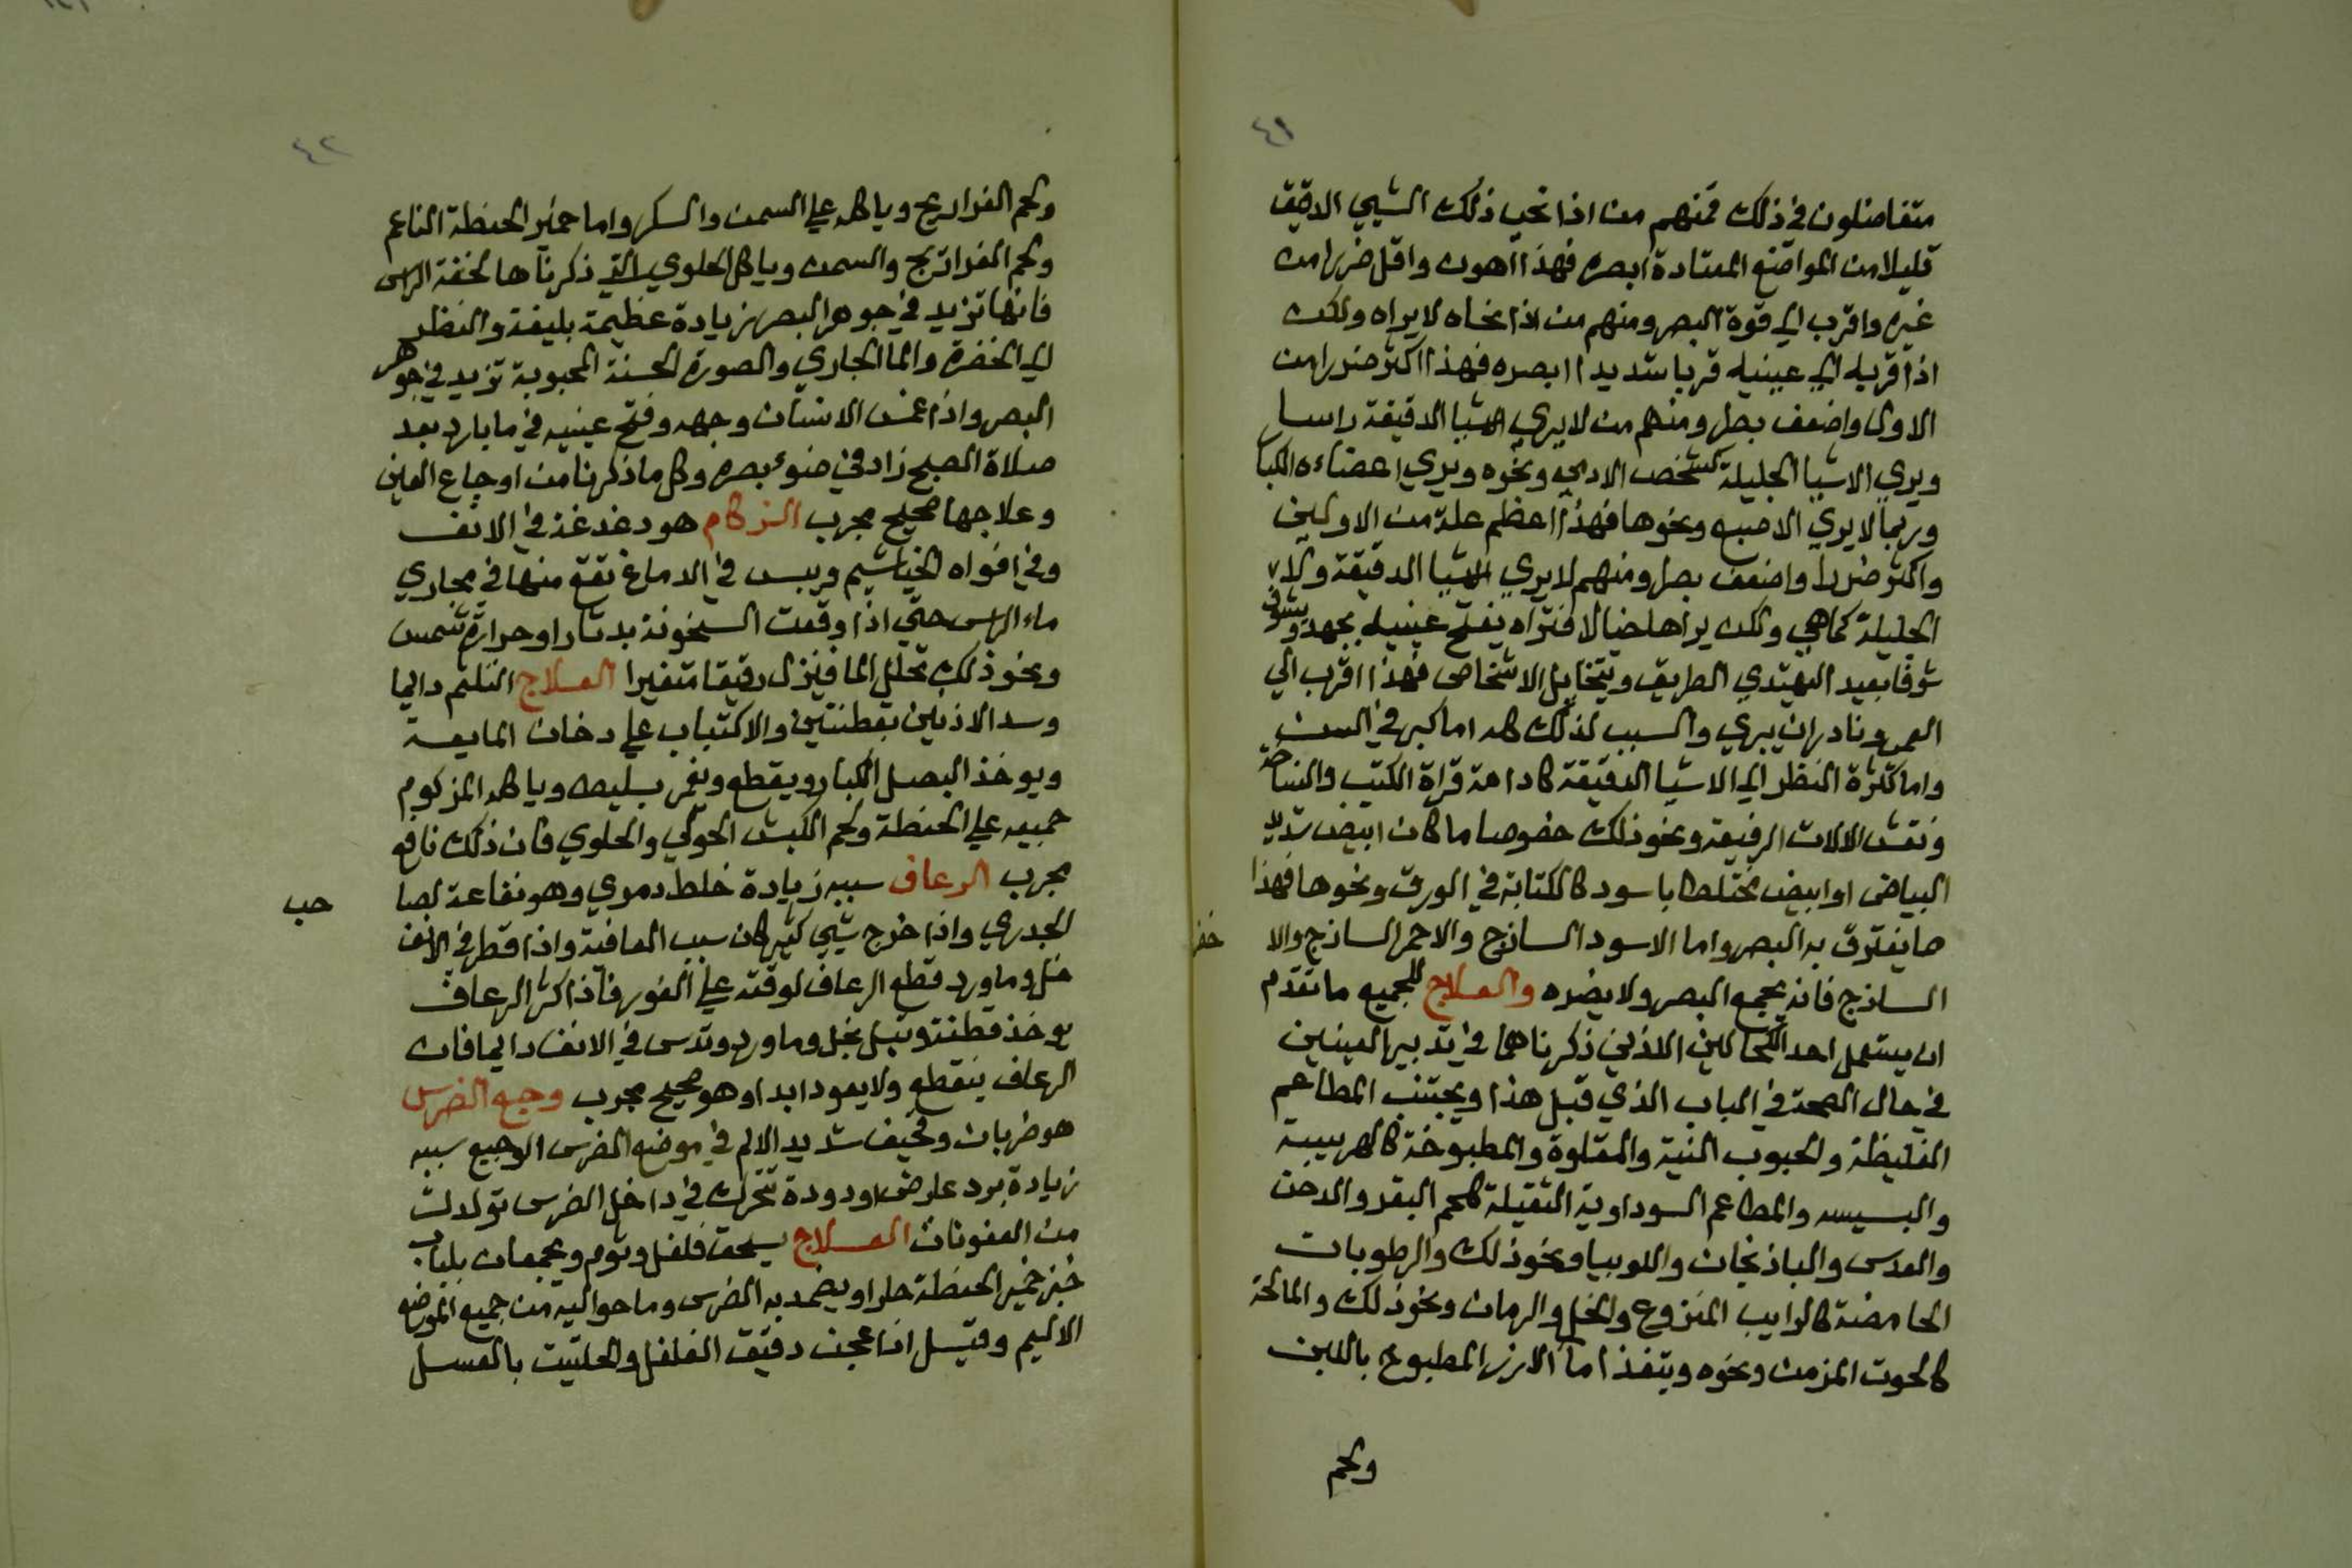 ٤١
متفاضلون في ذلك فمنهم من اذا نحي ذلك الشيي الدقيق
قليلا من المواضع المعتادة ابصره فهذا اهون واقل ضررا من
غيره واقرب الي قوة البصر ومنهم من اذا نحاه لا يراه ولكن
اذا قربه الي عينيه قربا شديدا ابصره فهذا اكثر ضررا من
الاول واضعف بصرا ومنهم من لا يري الاشيا الدقيقة راسا
ويري الاشيا الجليلة كشخص الادمي ونحوه ويري اعضاءه الكبا
وربما لا يري الاصبع ونحوها فهذا اعظم علة من الاولين
واكثر ضررا واضعف بصرا ومنهم لا يري الاشيا الدقيقة ولا
الجليلة كما هي ولكن يراها خيالا فتراه يفتح عينيه بجهد ويشوف
شوفا بعيدا ليهتدي الطريق ويتخايل الاشخاص فهذا اقرب الي
العمي ونادر ان يبري والسبب لذلك كله اما كبر في السن
واما كثرة النظر الي الاشيا الدقيقة كادامة قراة الكتب والنساخة
ونقش الالات الرفيعة ونحو ذلك خصوصا ما كان ابيض شديد
البياض او ابيض مختلطا باسود كالكتابة في الورق ونحوها فهذا
ما يفترق به البصر واما الاسود الساذج والاحمر الساذج والا
خضر
الساذج فانه يجمع البصر ولا يضره والعلاج للجميع ما تقدم
ان يستعمل احد الكحالين اللذين ذكرناهما في تدبير العينين
في حال الصحة في الباب الذي قبل هذا ويجتنب المطاعم
الغليظة والحبوب النية والمقلوة والمطبوخة كالهريسة
والبسيسه والمطاعم السوداوية الثقيلة كلحم البقر والدخن
والعدس والباذنجان واللوبيا ونحو ذلك والرطوبات
الحامضة كالرايب المنزوع والخل والرمان ونحو ذلك والمالحة
كالحوت المزمن ونحوه ويتغذا اما الارز المطبوخ باللبن
ولحم
٤٢
ولحم الفراريج وياكله علي السمن والسكر واما خمير الحنطة الناعم
ولحم الفراريج والسمن وياكل الحلوي التي ذكرناها لخفة الراس
فانها تزيد في جوهر البصر زيادة عظيمة بليغة والنظر
الي الخضرة والما الجاري والصورة الحسنة المحبوبة تزيد في جوهر
البصر واذا غمس الانسان وجهه وفتح عينيه في ما بارد بعد
صلاة الصبح زاد في ضوء بصره وكل ما ذكرنا من اوجاع العين
وعلاجها صحيح مجرب الزكام هو دغدغة في الانف
وفي افواه الخياشيم ويبس في الدماغ تقع منها في مجاري
ماء الراس حتي اذا وقعت السخونة بدثار او حرارة شمس
ونحو ذلك تحلل الما فينزل رقيقا متغيرا العلاج التلثم دايما
وسد الاذنين بقطنتين والاكتباب علي دخان المايعة
ويوخذ البصل الكبار ويقطع ويغمر بسليط وياكله المزكوم
جميعه علي الحنطة ولحم الكبش الحولي والحلوي فان ذلك نافع
مجرب الرعاف سببه زيادة خلط دموي وهو نفاعة لصا
حب
الجدري واذا خرج شيي كثير كان سبب العافية واذا قطر في الانف
خل وما ورد قطع الرعاف لوقته علي الفور فاذا كثر الرعاف
يوخذ قطنة وتبل بخل وما ورد وتدس في الانف دايما فان
الرعاف ينقطع ولا يعود ابدا وهو صحيح مجرب وجع الضرس
هو ضربان وخيف شديد الالم في موضع الضرس الوجيع سببه
زيادة برد عارض او دودة تتحرك في داخل الضرس تولدت
من العفونات العلاج يسحق فلفل وثوم ويعجنان بلباب
خبز خمير الحنطة حارا ويضمد به الضرس وما حواليه من جميع الموضع
الاليم وقيل اذا عجن دقيق الفلفل والحلتيت بالعسل